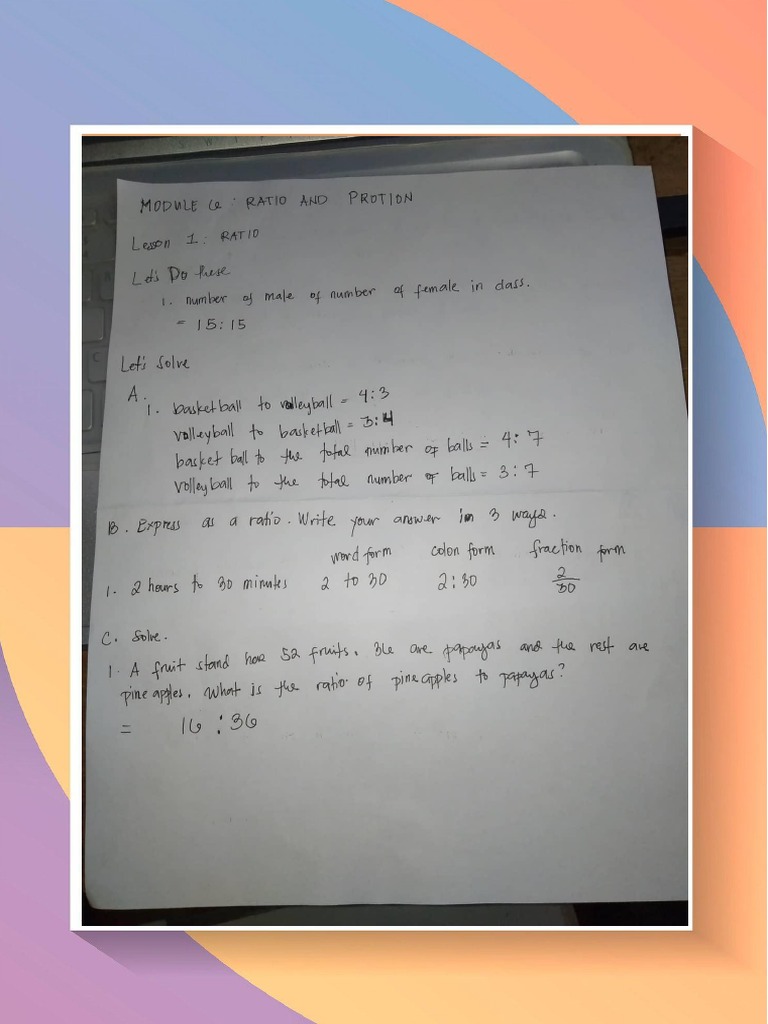 MODULE 6: RATIO AND PROTION
Lesson 1: RATIO
Let's Do these
1. number of male of number of female in class.
= 15:15
Let's Solve
A.
1. basketball to volleyball = 4:3
volleyball to basketball = 3:4
basket ball to the total number of balls = 4:7
volleyball to the total number of balls = 3:7
B. Express as a ratio. Write your answer in 3 ways.
word form colon form fraction form
1. 2 hours to 30 minutes 2 to 30 2:30 2/30
C. Solve.
1. A fruit stand has 52 fruits. 36 are papayas and the rest are
pineapples. What is the ratio of pineapples to papayas?
= 16:36